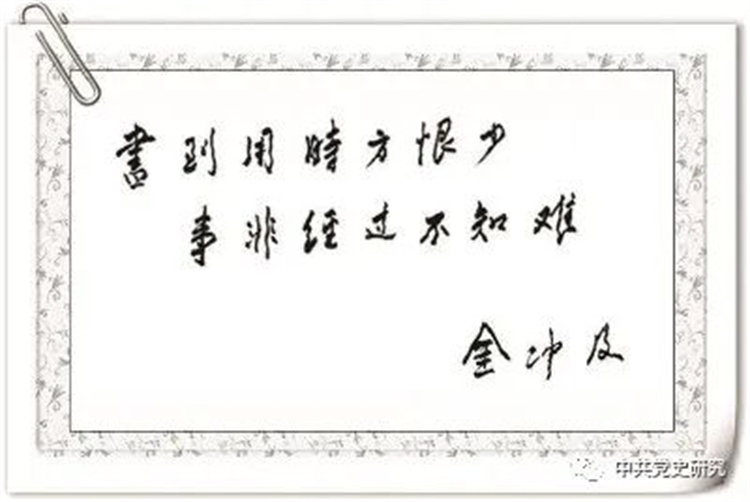 書到用時方恨少
事非经过不知难
金冲及
中共党史研究